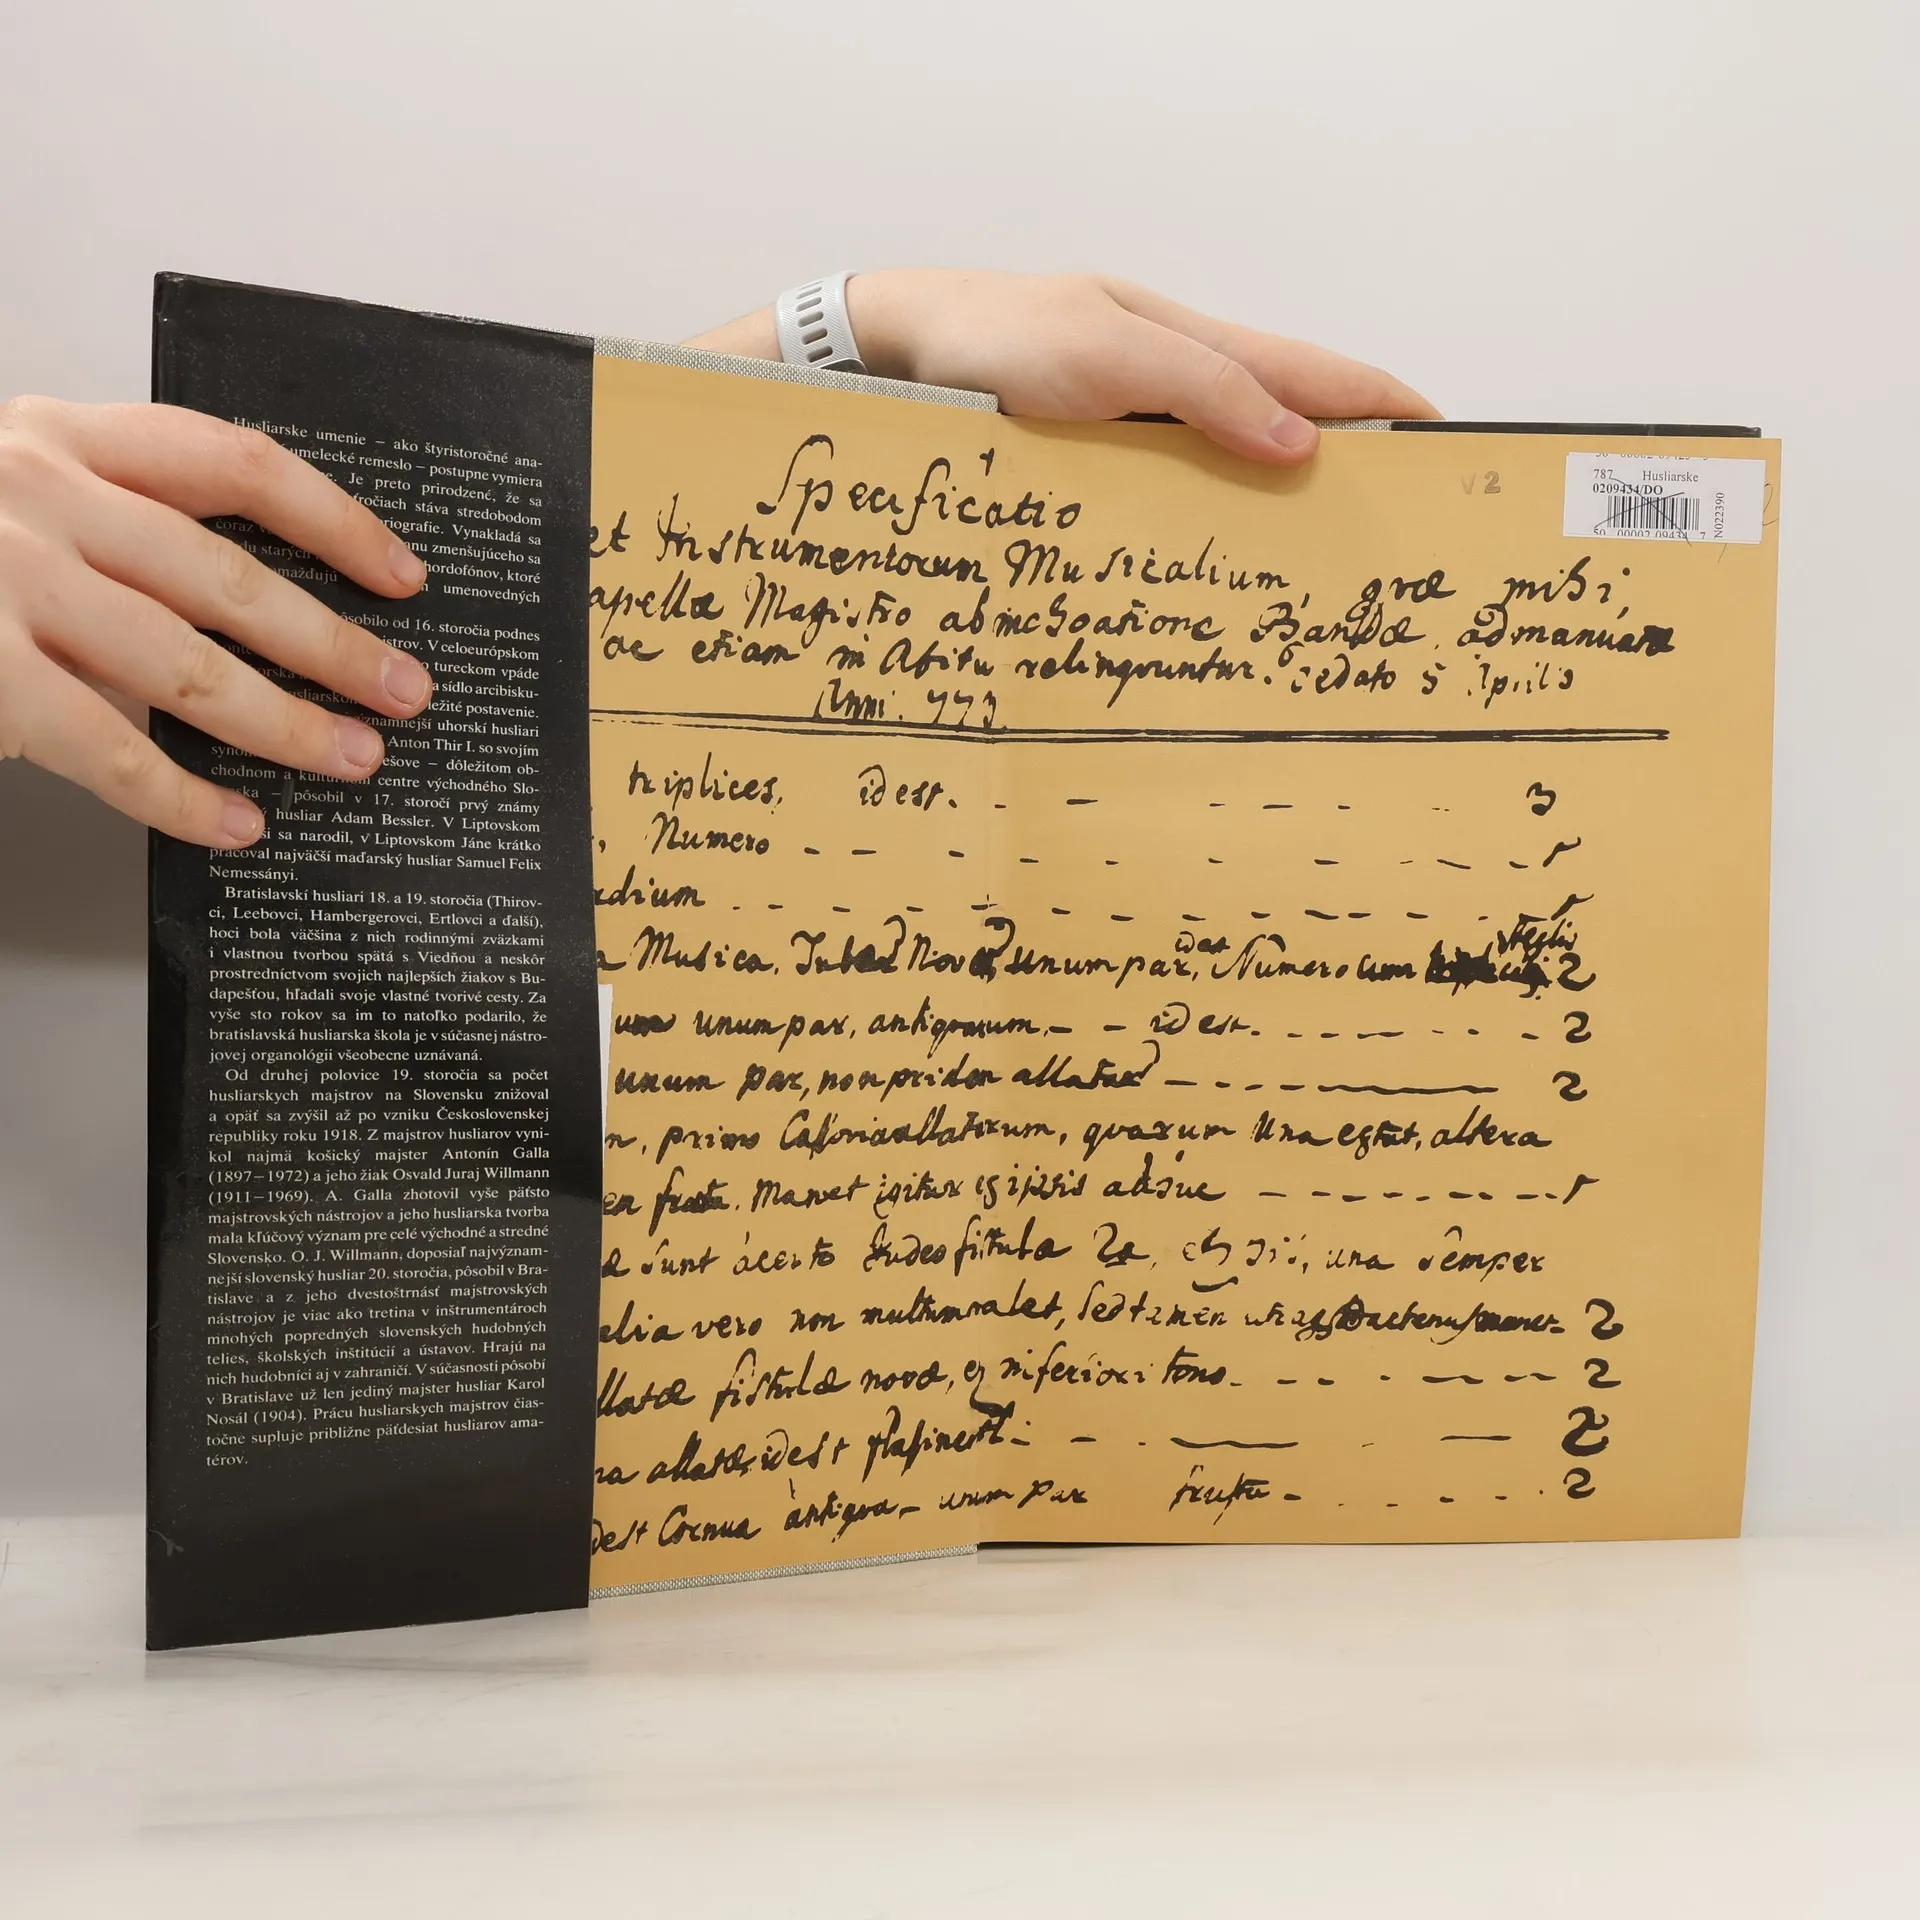 Husliarske umenie – ako štyristoročné ana-
umelecké remeslo – postupne vymiera
Je preto prirodzené, že sa
ročiach stáva stredobodom
coraz riografie. Vynakladá sa
du starých anu zmenšujúceho sa
omažďujú hordofónov, ktoré
umenovedných
sobilo od 16. storočia podnes
strov. V celoeurópskom
o tureckom vpáde
a sídlo arcibisku-
ležité postavenie.
znamnejší uhorskí husliari
Anton Thir I. so svojím
ešove – dôležitom ob-
chodnom a kultúrnom centre východného Slo-
ska – pôsobil v 17. storočí prvý známy
husliar Adam Bessler. V Liptovskom
ši sa narodil, v Liptovskom Jáne krátko
pracoval najväčší maďarský husliar Samuel Felix
Nemessányi.
Bratislavskí husliari 18. a 19. storočia (Thirov-
ci, Leebovci, Hambergerovci, Ertlovci a ďalší),
hoci bola väčšina z nich rodinnými zväzkami
i vlastnou tvorbou spätá s Viedňou a neskôr
prostredníctvom svojich najlepších žiakov s Bu-
dapešťou, hľadali svoje vlastné tvorivé cesty. Za
vyše sto rokov sa im to natoľko podarilo, že
bratislavská husliarska škola je v súčasnej nástro-
jovej organológii všeobecne uznávaná.
Od druhej polovice 19. storočia sa počet
husliarskych majstrov na Slovensku znižoval
a opäť sa zvýšil až po vzniku Československej
republiky roku 1918. Z majstrov husliarov vyni-
kol najmä košický majster Antonín Galla
(1897–1972) a jeho žiak Osvald Juraj Willmann
(1911–1969). A. Galla zhotovil vyše päťsto
majstrovských nástrojov a jeho husliarska tvorba
mala kľúčový význam pre celé východné a stredné
Slovensko. O. J. Willmann, doposiaľ najvýznam-
nejší slovenský husliar 20. storočia, pôsobil v Bra-
tislave a z jeho dvestoštrnásť majstrovských
nástrojov je viac ako tretina v inštrumentároch
mnohých popredných slovenských hudobných
telies, školských inštitúcií a ústavov. Hrajú na
nich hudobníci aj v zahraničí. V súčasnosti pôsobí
v Bratislave už len jediný majster husliar Karol
Nosál (1904). Prácu husliarskych majstrov čias-
točne supluje približne päťdesiat husliarov ama-
térov.
V2
787 Husliarske
0209434/DO
50 00002 09434 7
N022390
Specificatio
et Instrumentorum Musicalium, qvæ mihi,
apellæ Magistro ab inchoatione Bandæ, ad manua
ac etiam in Abitu relinqvuntur. dedato 5 Aprilis
Anni. 773
triplices, idest. - - - - - 3
Numero - - - - - 1
rdium - - - - - 1
a Musica. Tubæ Novæ unum par, idest Numero cum 2
unum par, antiqvarum, - - idest. - - - 2
unum par, non pridem allatæ - - - 2
n, primo allatarum, qvarum Una extat, altera
en fracta. Manet igitur ex ipsis adhuc - - - 1
æ sunt fistulæ una semper
alia vero non multum valet, sed tamen 2
llatæ fistulæ novæ, ex inferiori tono. - - - 2
na allatæ, idest - - - 2
dest Cornua antiqva - unum par - - - 2